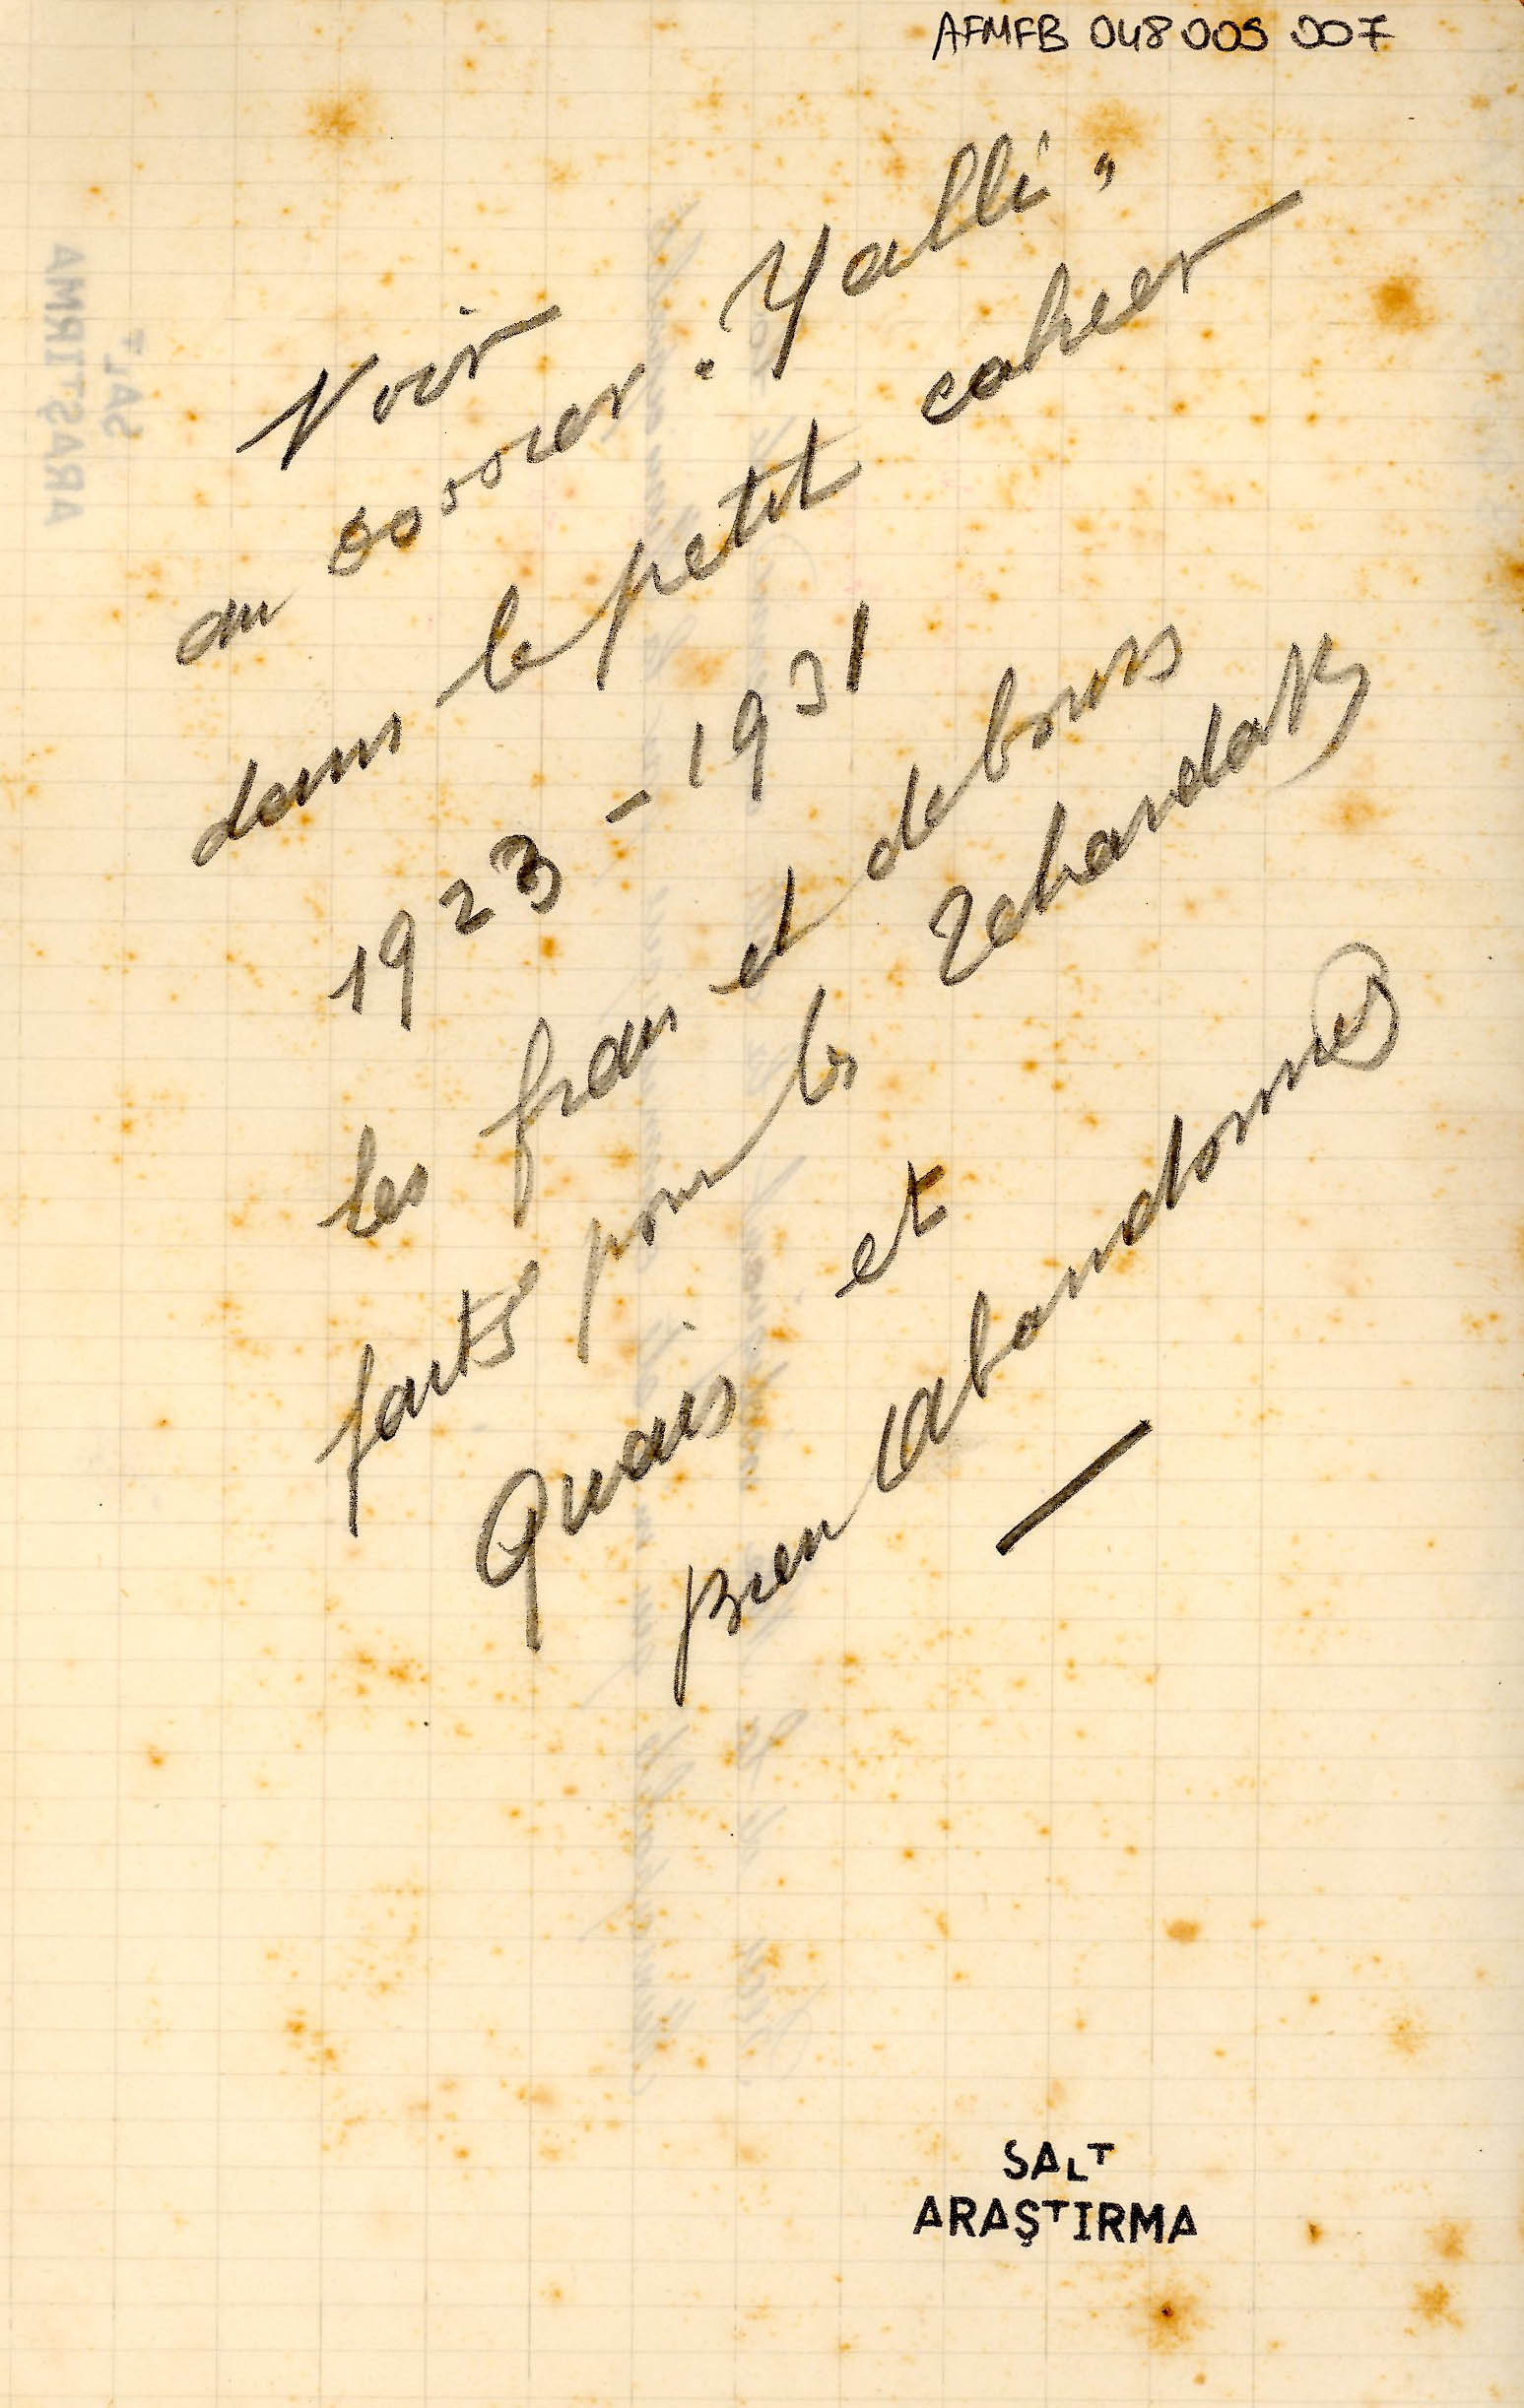 AFMFB 048005007
Voir
au dossier "Yalli"
dans le petit cahier
1923 - 1931
les frais et debours
faits pour les
Quais et
bien abandonnés
SALT
ARAŞTIRMA